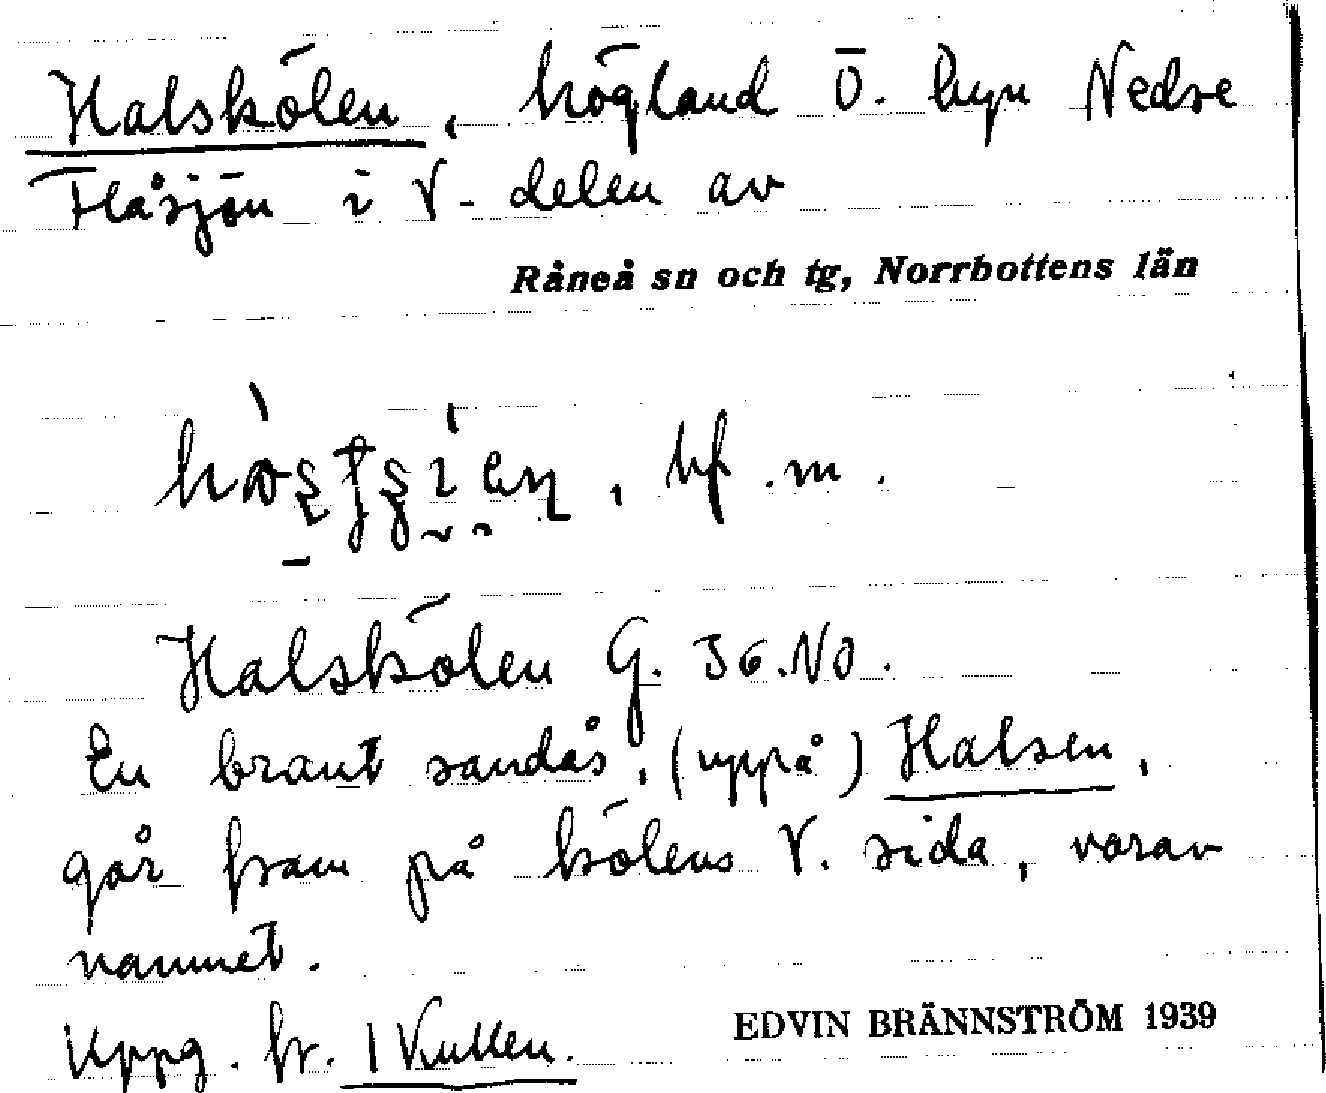 Halskölen, högland Ö. byn Nedre
Flåsjön i V. delen av
Råneå sn och tg, Norrbottens län
bf. m.
Halskölen G. 36. NO.
En brant sandås, (uppå) Halsen,
går fram på kölens V. sida, varav
namnet.
Uppg. fr. 1 Kullen.
EDVIN BRÄNNSTRÖM 1939